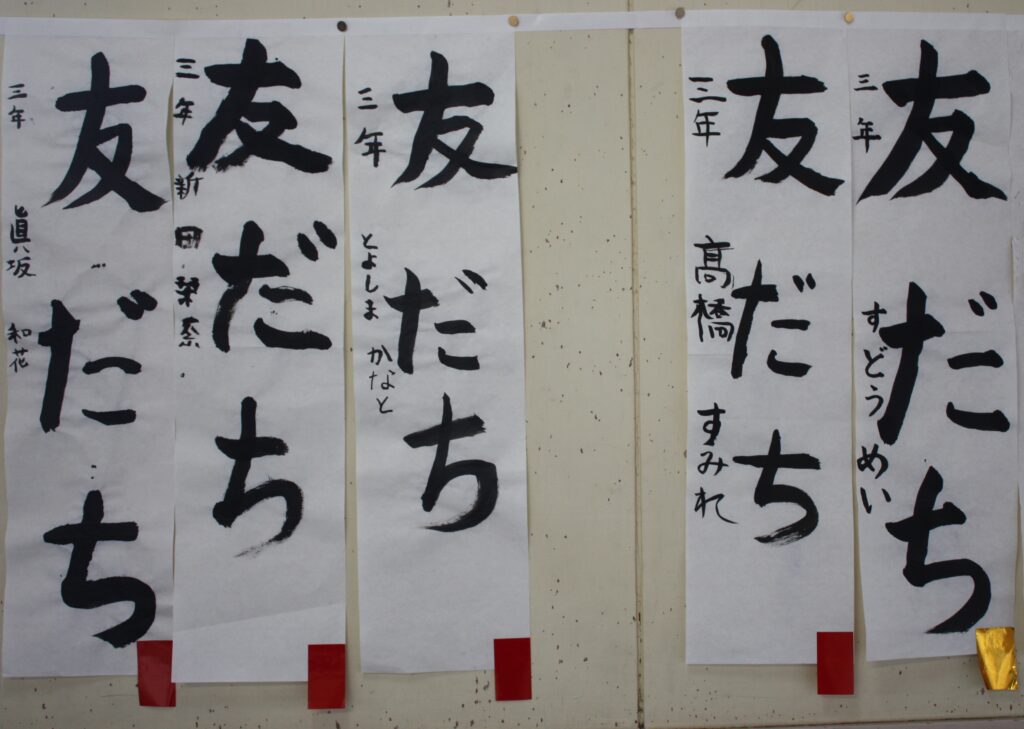 友だち
三年 眞坂 和花
友だち
三年 新田 栞奈
友だち
三年 とよしま かなと
友だち
三年 髙橋 すみれ
友だち
三年 すどう めい